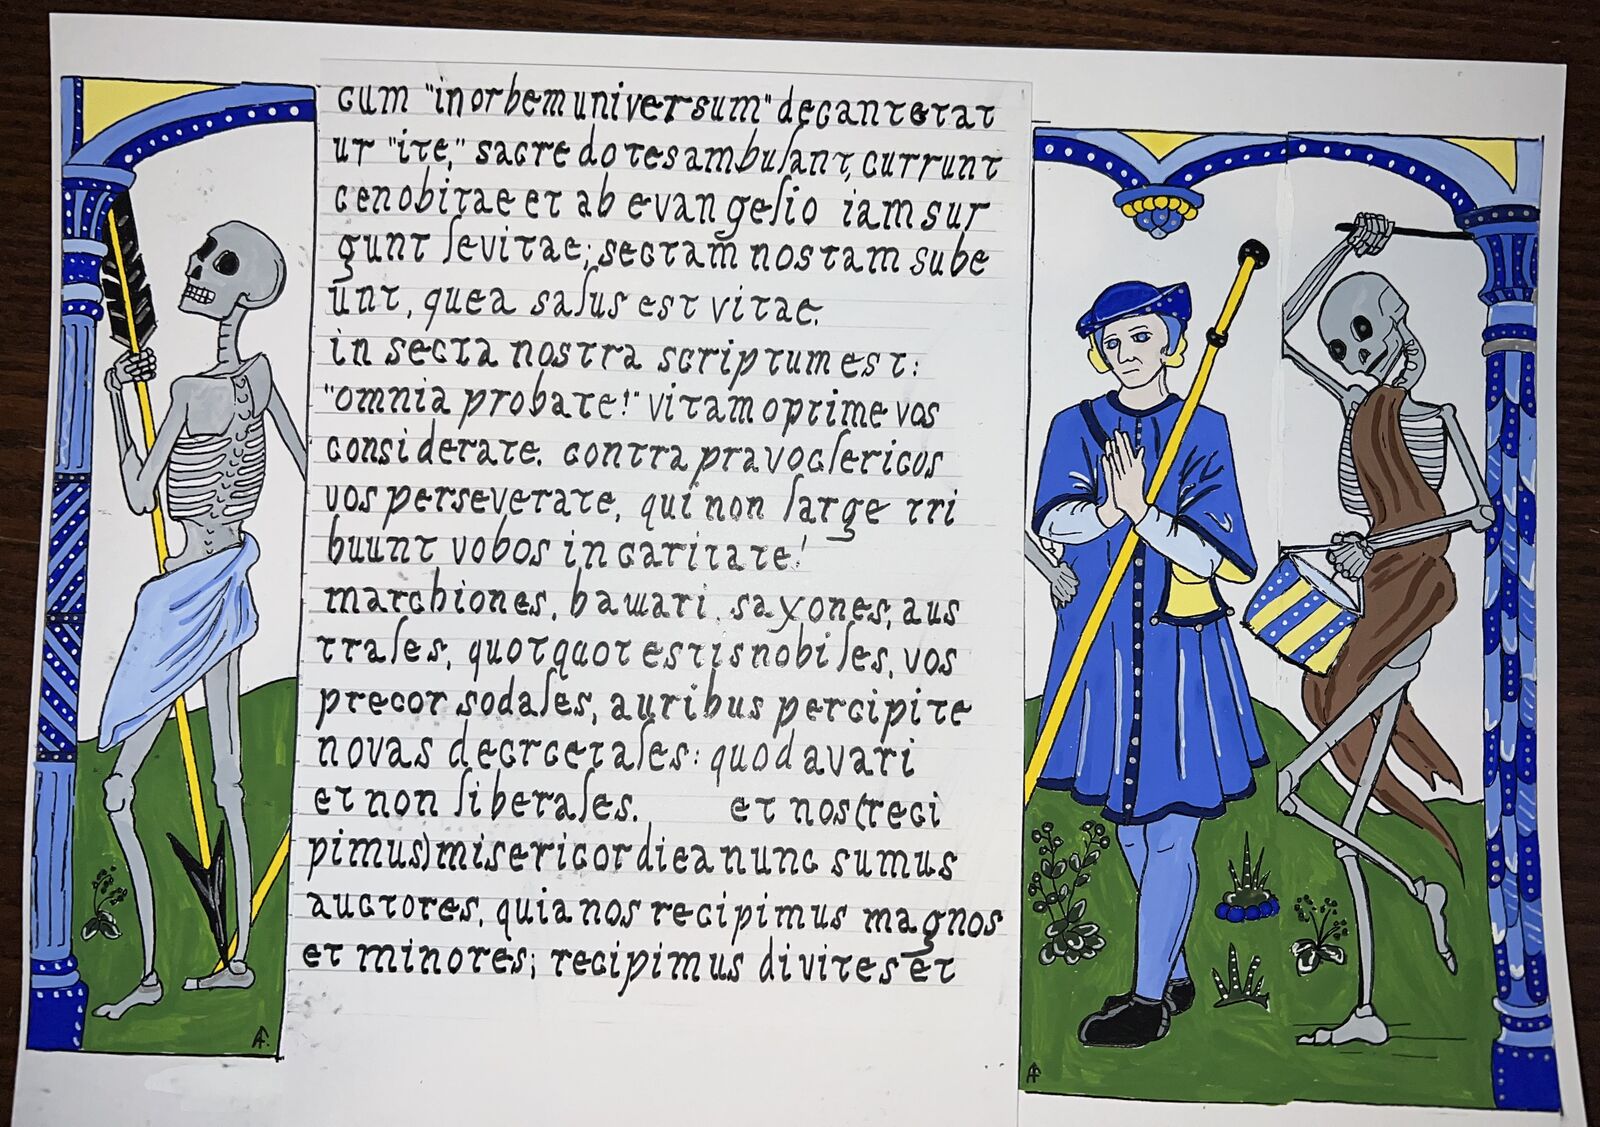 cum "in orbem universum" decantetat
ur "ite," sacredotes ambulant, currunt
cenobitae et ab evangelio iam sur
gunt levitae; sectam nostam sube
unt, quea salus est vitae.
in secta nostra scriptum est:
"omnia probate!" vitam optime vos
considerate. contra pravo clericos
vos perseverate, qui non large tri
buunt vobos in caritate!
marchiones, bawari, saxones, aus
trales, quotquot estis nobiles, vos
precor sodales, auribus percipite
novas decrcetales: quod avari
et non liberales. et nos (reci
pimus) misericordiea nunc sumus
auctores, quia nos recipimus magnos
et minores; recipimus divites et
AF
AF